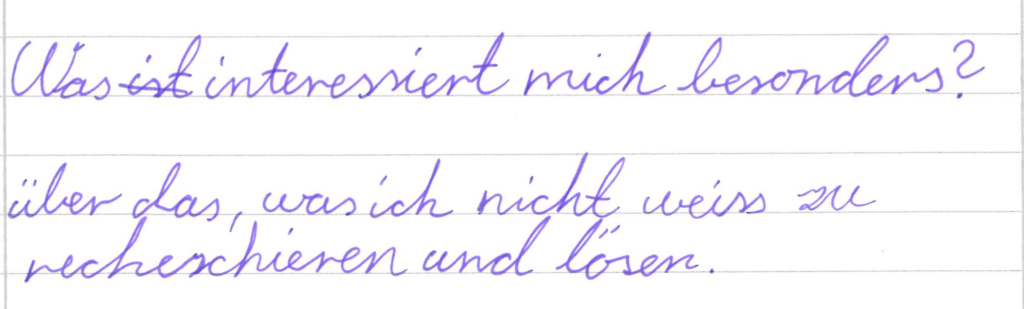 Was ist interessiert mich besonders?
über das, was ich nicht weiss zu
recheschieren und lösen.